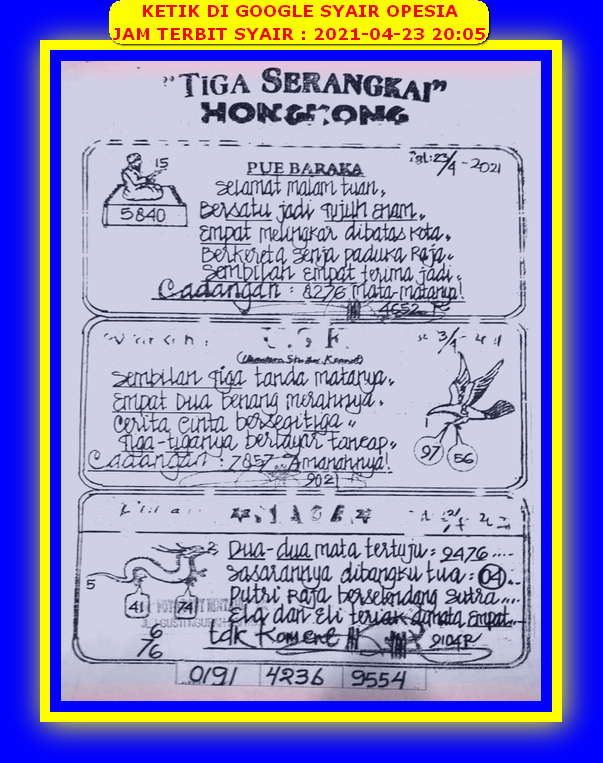 KETIK DI GOOGLE SYAIR OPESIA
JAM TERBIT SYAIR : 2021-04-23 20:05
"TIGA SERANGKAI"
HONGKONG
PUE BARAKA
Tgl: 23/4 - 2021
15
5840
Selamat malam tuan,
Bersatu jadi tujuh enam,
Empat melingkar dibatas kota,
Berkereta senja paduka Raja,
Sembilan empat terima jadi,
Cadangan : 8276 Mata-matanya!
4652
Sembilan tiga tanda matanya,
Empat Dua benang merahnya,
Cerita cinta bersegitiga
Tiga-tiganya berlayar tancap,
Cadangan : 7857. Amanahnya!
9021
97
56
Dua-dua mata tertuju: 2476 ....
Sasarannya dibangku tua: 04 ..
Putri Raja berselendang Sutra ....
Ela dan Eli teriak Empat
tdk Komene
9104
2
5
41
74
6
76
0191 4236 9554